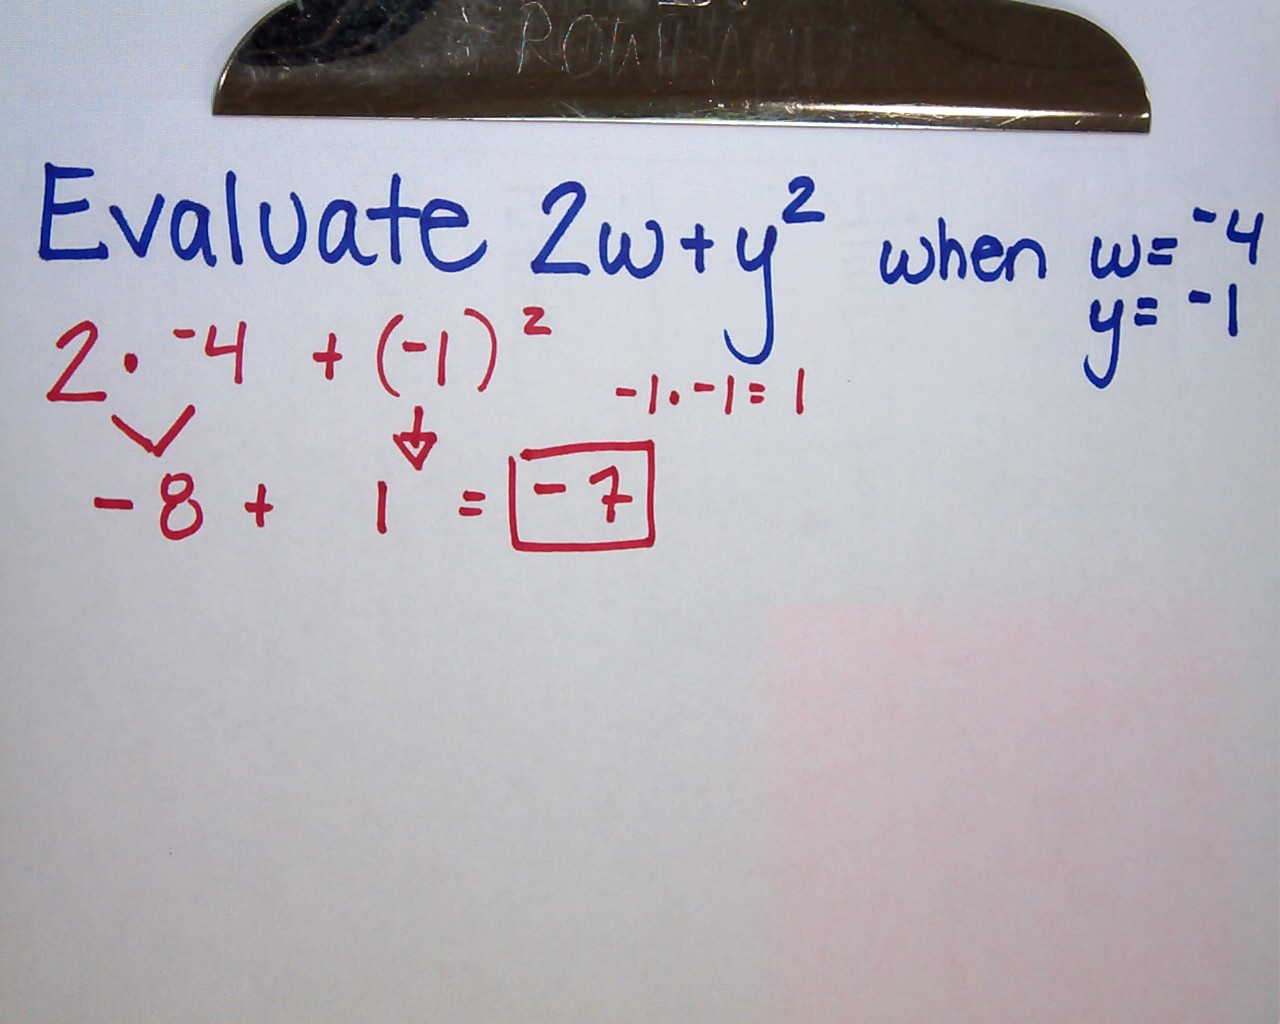 Evaluate 2w+y² when w= -4
y= -1
2 · -4 + (-1)²
-1 · -1 = 1
-8 + 1 = -7